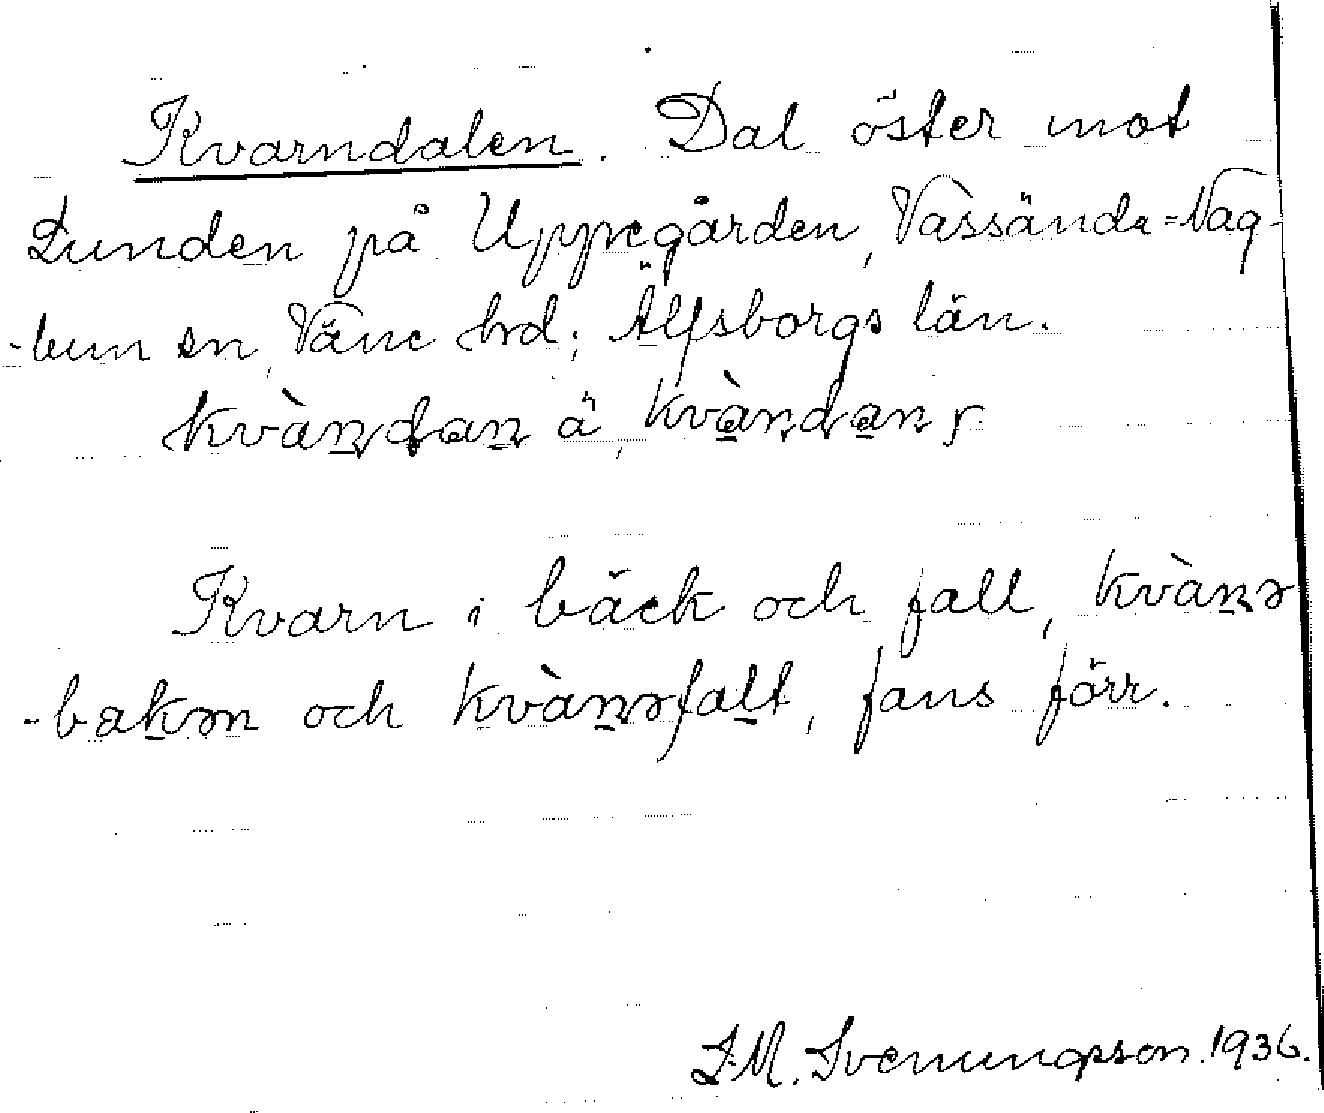 Kvarndalen. Dal öster mot
Lunden på Uppegården, Vassända-Nag-
-lum sn, Väne hrd; Älfsborgs län.
kvàn̠dan̠ ä, kvàn̠dan̠s.
Kvarn i bäck och fall, kvàn̠ə
-bakən och kvàn̠əfalt, fans förr.
J.M. Svenungsson. 1936.